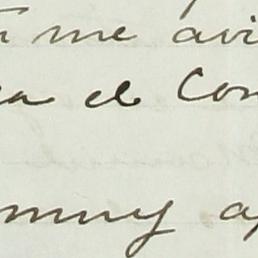 me avi
a el Con
muy a